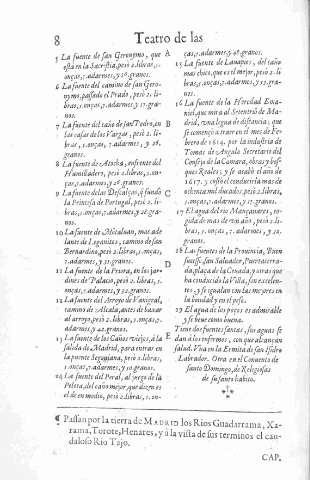 8 Teatro de las
5 La fuente de san Geronimo, que
està en la Sacristia, pesò 2. libras, 1.
onças, 7. adarmes, y 26. granos.
6 La fuente del camino de san Gero-
nymo, passado el Prado, pesò 2. li-
bras, 1. onças, 7. adarmes, y 27. gra-
nos.
7 La fuente del caño de san Pedro, en
las casas de los Vargas, pesò 2. li-
bras, 1. onças, 7. adarmes, y 28.
granos.
8 La fuente de Atocha, enfrente del
Humilladero, pesò 2. libras, 1. on-
ças, 7. adarmes, y 28. granos.
9 La fuente de las Descalças, q̃ fundò
la Princesa de Portugal, pesò 2. li-
bras, 1. onças, 7. adarmes, y 28. gra-
nos.
10 La fuente de Mealuan, mas ade
lante de Leganitos, camino de san
Bernardino, pesò 2. libras, 1. onças,
7. adarmes, y 31. granos.
11 La fuente de la Priora, en los jar-
dines de Palacio, pesò 2. libras, 1.
onças, 7. adarmes, y 32. granos.
12 La fuente del Arroyo de Vanigral,
camino de Alcala, antes de baxar
al arroyo, pesò 2. libras, 1. onças, 7.
adarmes, y 42. granos.
13 La fuente de los Caños viejos, à la
salida de Madrid, para entrar en
la puente Segouiana, pesò 2. libras,
1. onças, 7. adarmes, y 50. granos.
14 La fuente del Peral, al juego de la
Pelota, del caño mejor, que dizen es
el de en medio, pesò 2. libras, 1. on-
A
B
C
D
ças, 7. adarmes, y 48. granos.
15 La fuente de Lauapies, del caño
mas chico, que es el mejor, pesò 2. li-
bras, 1. onças, 7. adarmes, y 52. gra-
nos.
16 La fuente de la Heredad Ema-
niel, que mira al Setentrió de Ma-
drid, vna legua de distancia; que
se començò a traer en el mes de Fe-
brero de 1614. por la industria de
Tomas de Angulo Secretario del
Consejo de la Camara, obras y bos-
ques Reales; y se acabò el año de
1617. y costò el conducirla mas de
ochenta mil ducados, pesò 2. libras,
1. onças, 7. adarmes, y 52. granos.
17 El agua del rio Mançanares, co-
gida de mas de vn año, pesò 2. li-
bras, 1. onças, 7. adarmes, y 20.
granos.
18 Las fuentes de la Prouincia, Buen
sucesso, san Saluador, Puertacerra-
da, plaça de la Ceuada, y otras que
ha conducido la Villa, son excelen-
tes, y se igualan con las mejores en
la bondad y en el peso.
29 El agua de los poços es admirable
y se beue como buena.
Tiene dos fuentes santas, sus aguas se
dan à los enfermos, con que alcançan
salud. Vna en la Ermita de san Isidro
Labrador. Otra en el Conuento de
santo Domingo, de Religiosas
de su santo habito.
¶ Passan por la tierra de MADRID los Rios Guadarrama, Xa-
rama, Torote, Henares, y à la vista de sus terminos el cau-
daloso Rio Tajo.
CAP.